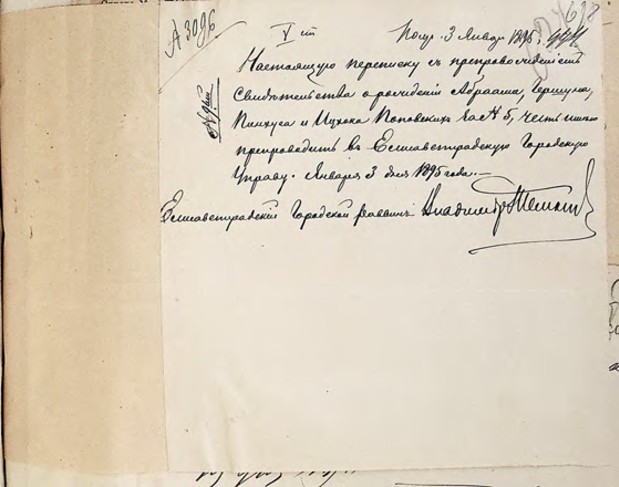 А 3096
V ст
Пол. 3 Января 1895 г.
Настоящую переписку съ препровожденіемъ
Свидѣтельства о рожденіи Абрама, Гершуна,
Пинхуса и Ицхока Поповскихъ за № 5, честь имѣю
препроводить въ Елисаветградскую Городскую
Управу. Января 3 дня 1895 года.—
Елисаветградскій Городской раввинъ Владимір